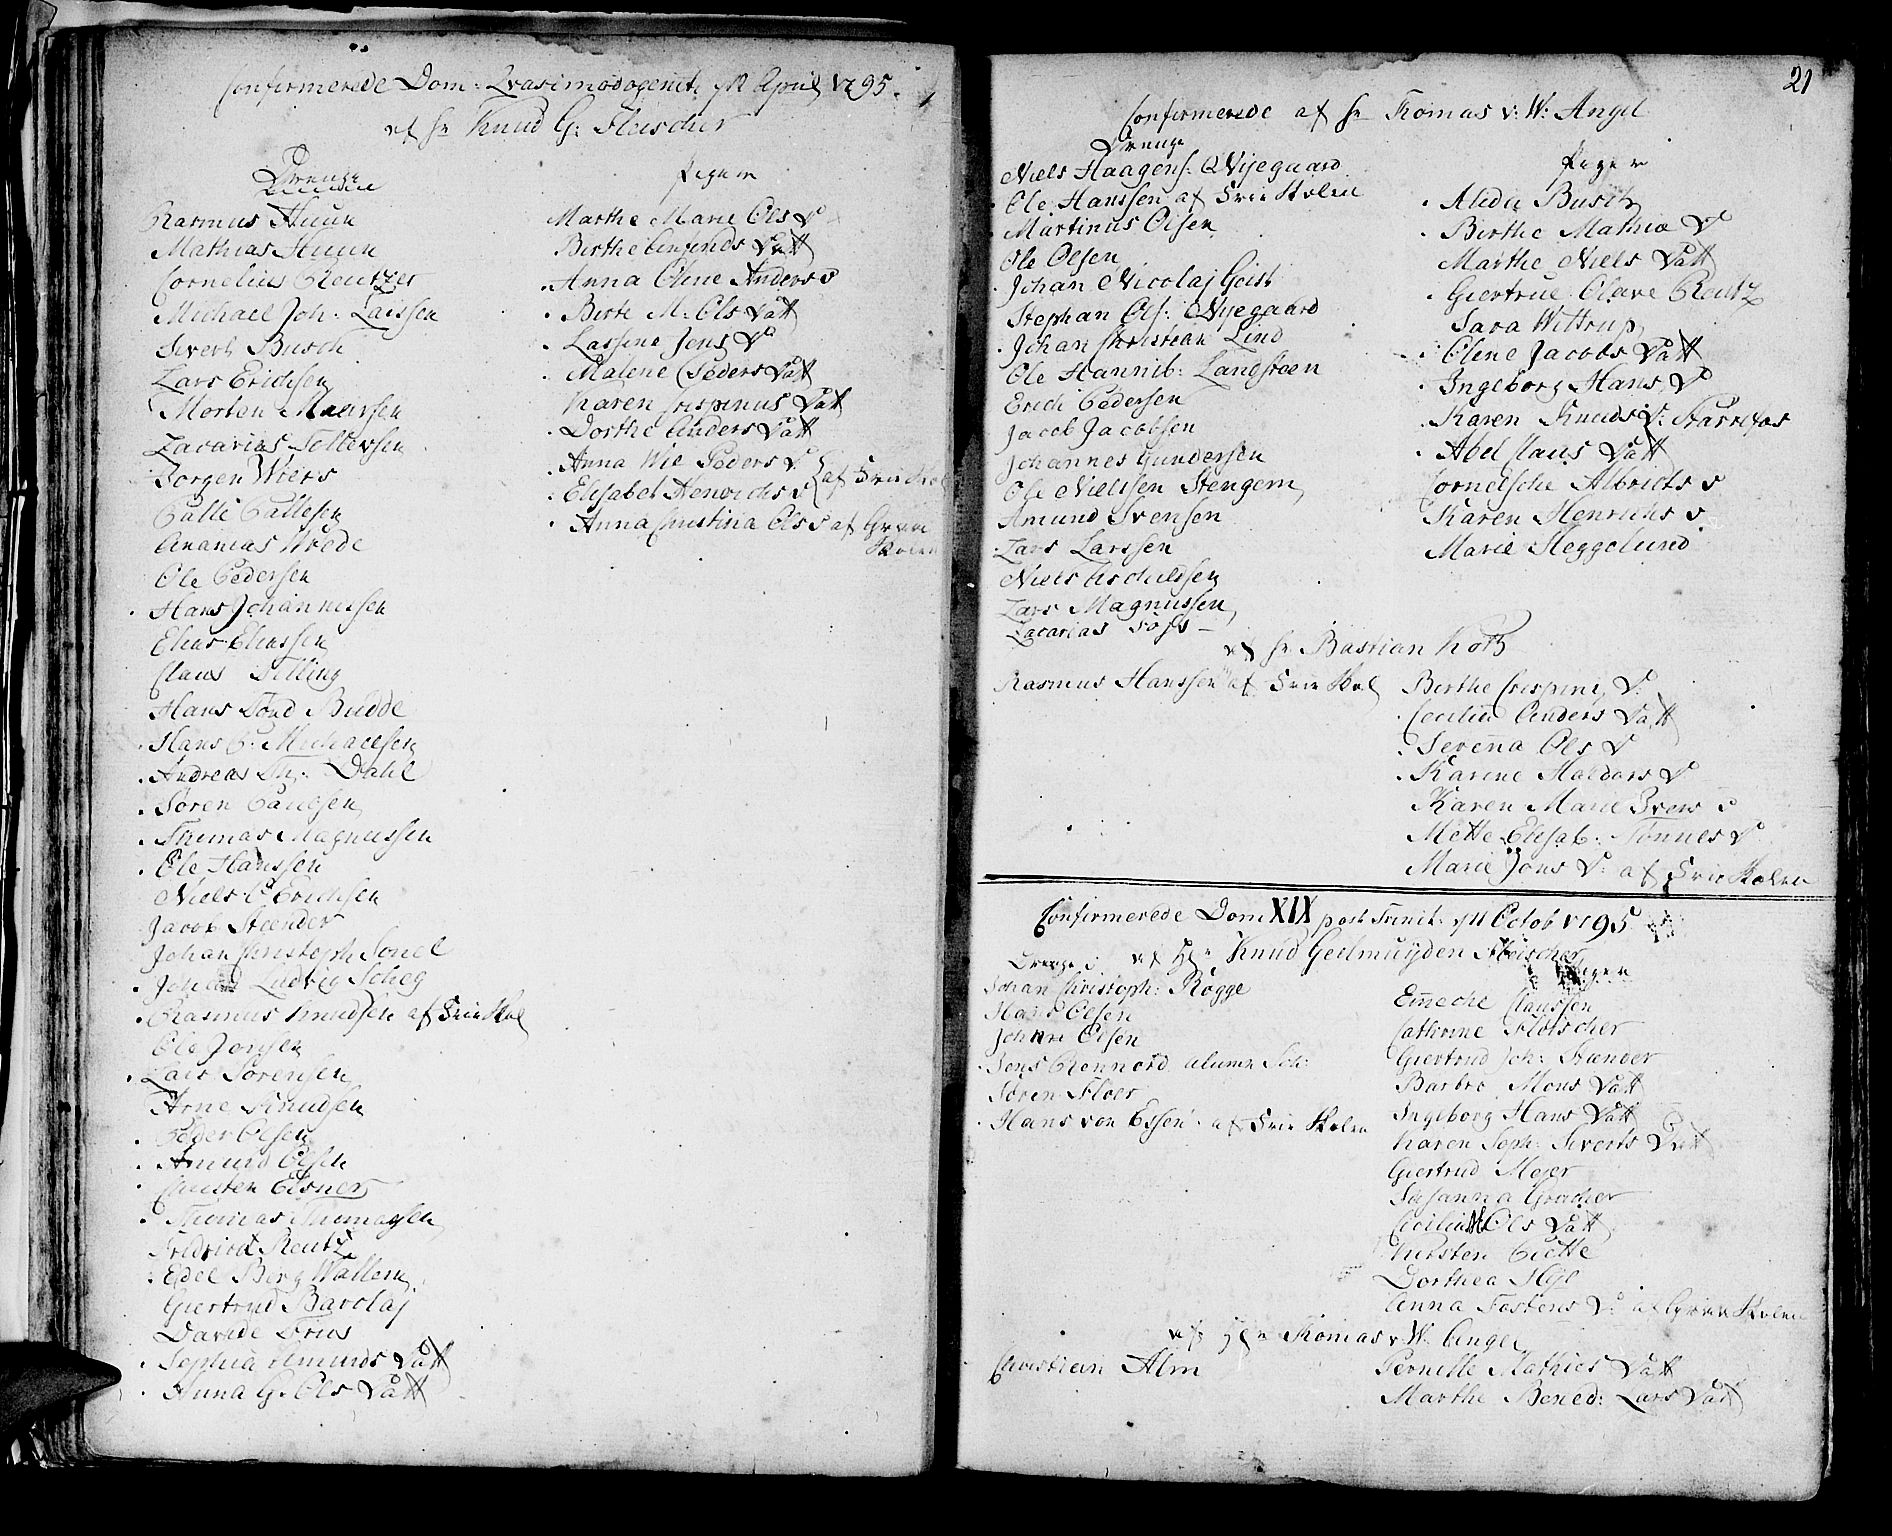 Confirmerede Dom: Qvasimodogenit: d 12 April 1795.
af Hr Knud G: Fleischer
Drenge
Rasmus Huun
Mathias Huun
Cornelius Reutzer
Michael Joh: Larssen
Sivert Busch
Lars Erichsen
Morten
Zacarias Tollevsen
Jørgen Wiers
Palle Pallesen
Ananias Wrede
Ole Pedersen
Hans Johannessen
Elias Eliassen
Claus Filling
Hans Tord Budde
Hans P: Michaelsen
Andreas Th: Dahl
Søren Paulsen
Thomas Magnussen
Ole Hanssen
Niels C Erichsen
Jacob Stænder
Johan Christoph Sonel
Ludvig Scheg
Rasmus Knudsen af Frie Skol
Ole Jonsen
Lars Sørensen
Arne Knudsen
Peder Olsen
Amund Olsen
Christen Elsner
Thomas Thomassen
Fridrich Reutz
Edel Berg Wallem
Giertrud Barolaj
Davide Friis
Sophia Amunds Datt
Anna G. Ols Datt
Piger
Marthe Marie Ols D
Birthe Datt
Anna Oline Anders D
Birte M: Ols Datt
Lassine Jens D
Malene Peders Datt
Karen Crispinus Datt
Dorthe Anders Datt
Anna Wie Peders D
Elisabet Henrichs D af Frie Skol
Anna Christina Ols D af
Skolen
21
Confirmerede af Hr Thomas v: W: Angel
Drenge
Niels Haagens: Nyegaard
Ole Hanssen af Frie Skolen
Martinus Olsen
Ole Olsen
Johan Nicolaj Geist
Stephan Ols: Nyegaard
Johan Christian Lind
Ole Hannib: Landsteen
Erich Pedersen
Jacob Jacobsen
Johannes Gundersen
Ole Nielssen Stengem
Amund Svensen
Lars Larssen
Niels Aschildsen
Lars Magnussen
Zacarias
Piger
Alida Busch
Birthe Mathiæ D
Marthe Niels Datt
Giertrue Olave Reutz
Sara Wittrup
Olene Jacobs Datt
Ingeborg Hans D
Karen Knuds D: Starrefos
Abel Claus Datt
Cornelsche Albricts D
Karen Henrichs D
Marie Heggelund
af Hr Bastian Kotz
Rasmus Hanssen af Frie Skol
Berthe Crespini D:
Cecilia Anders Datt
Serena Ols D
Karine Haldors D
Karen Marie Ivers D
Mette Elisab: Tønnes D
Marie Jons D: af Frie Skolen
Confirmerede Dom XIX post Trinit: d 11 Octob 1795
af Hr Knud Geelmuyden Fleischer
Drenge
Johan Christoph: Rogge
Hans Olsen
Johan Olsen
Jens Rennord alumn Sch:
Søren Floer
Hans von Essen af Frie Skolen
Piger
Emeche Claussen
Cathrine Fleischer
Giertrud Joh: Stænder
Barbro Mons Datt
Ingeborg Hans Datt
Karen Soph: Siverts Datt
Giertrud Mejer
Susanna Grøcher
Cicilia Ols Datt
Kirsten Piette
Dorthea
Anna Tostens D: af Skolen
af Hr Thomas v W. Angel
Christian Alm
Pernille Mathies Datt
Marthe Bened: Lars Datt